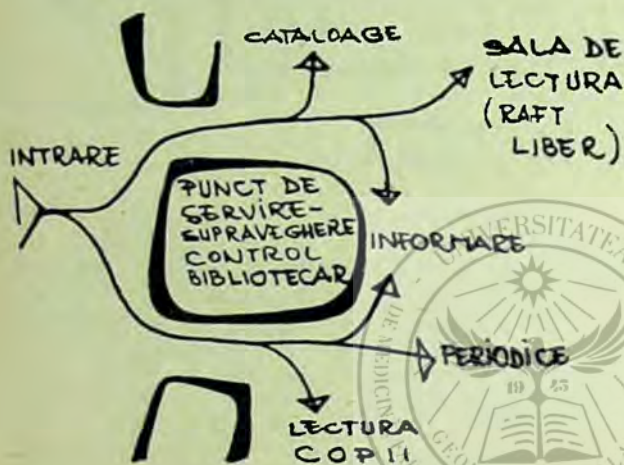 CATALOAGE
SALA DE
LECTURA
(RAFT
LIBER)
INTRARE
PUNCT DE
SERVIRE-
SUPRAVEGHERE
CONTROL
BIBLIOTECAR
INFORMARE
PERIODICE
LECTURA
COPII
UNIVERSITATEA
DE MEDICINĂ
19 45